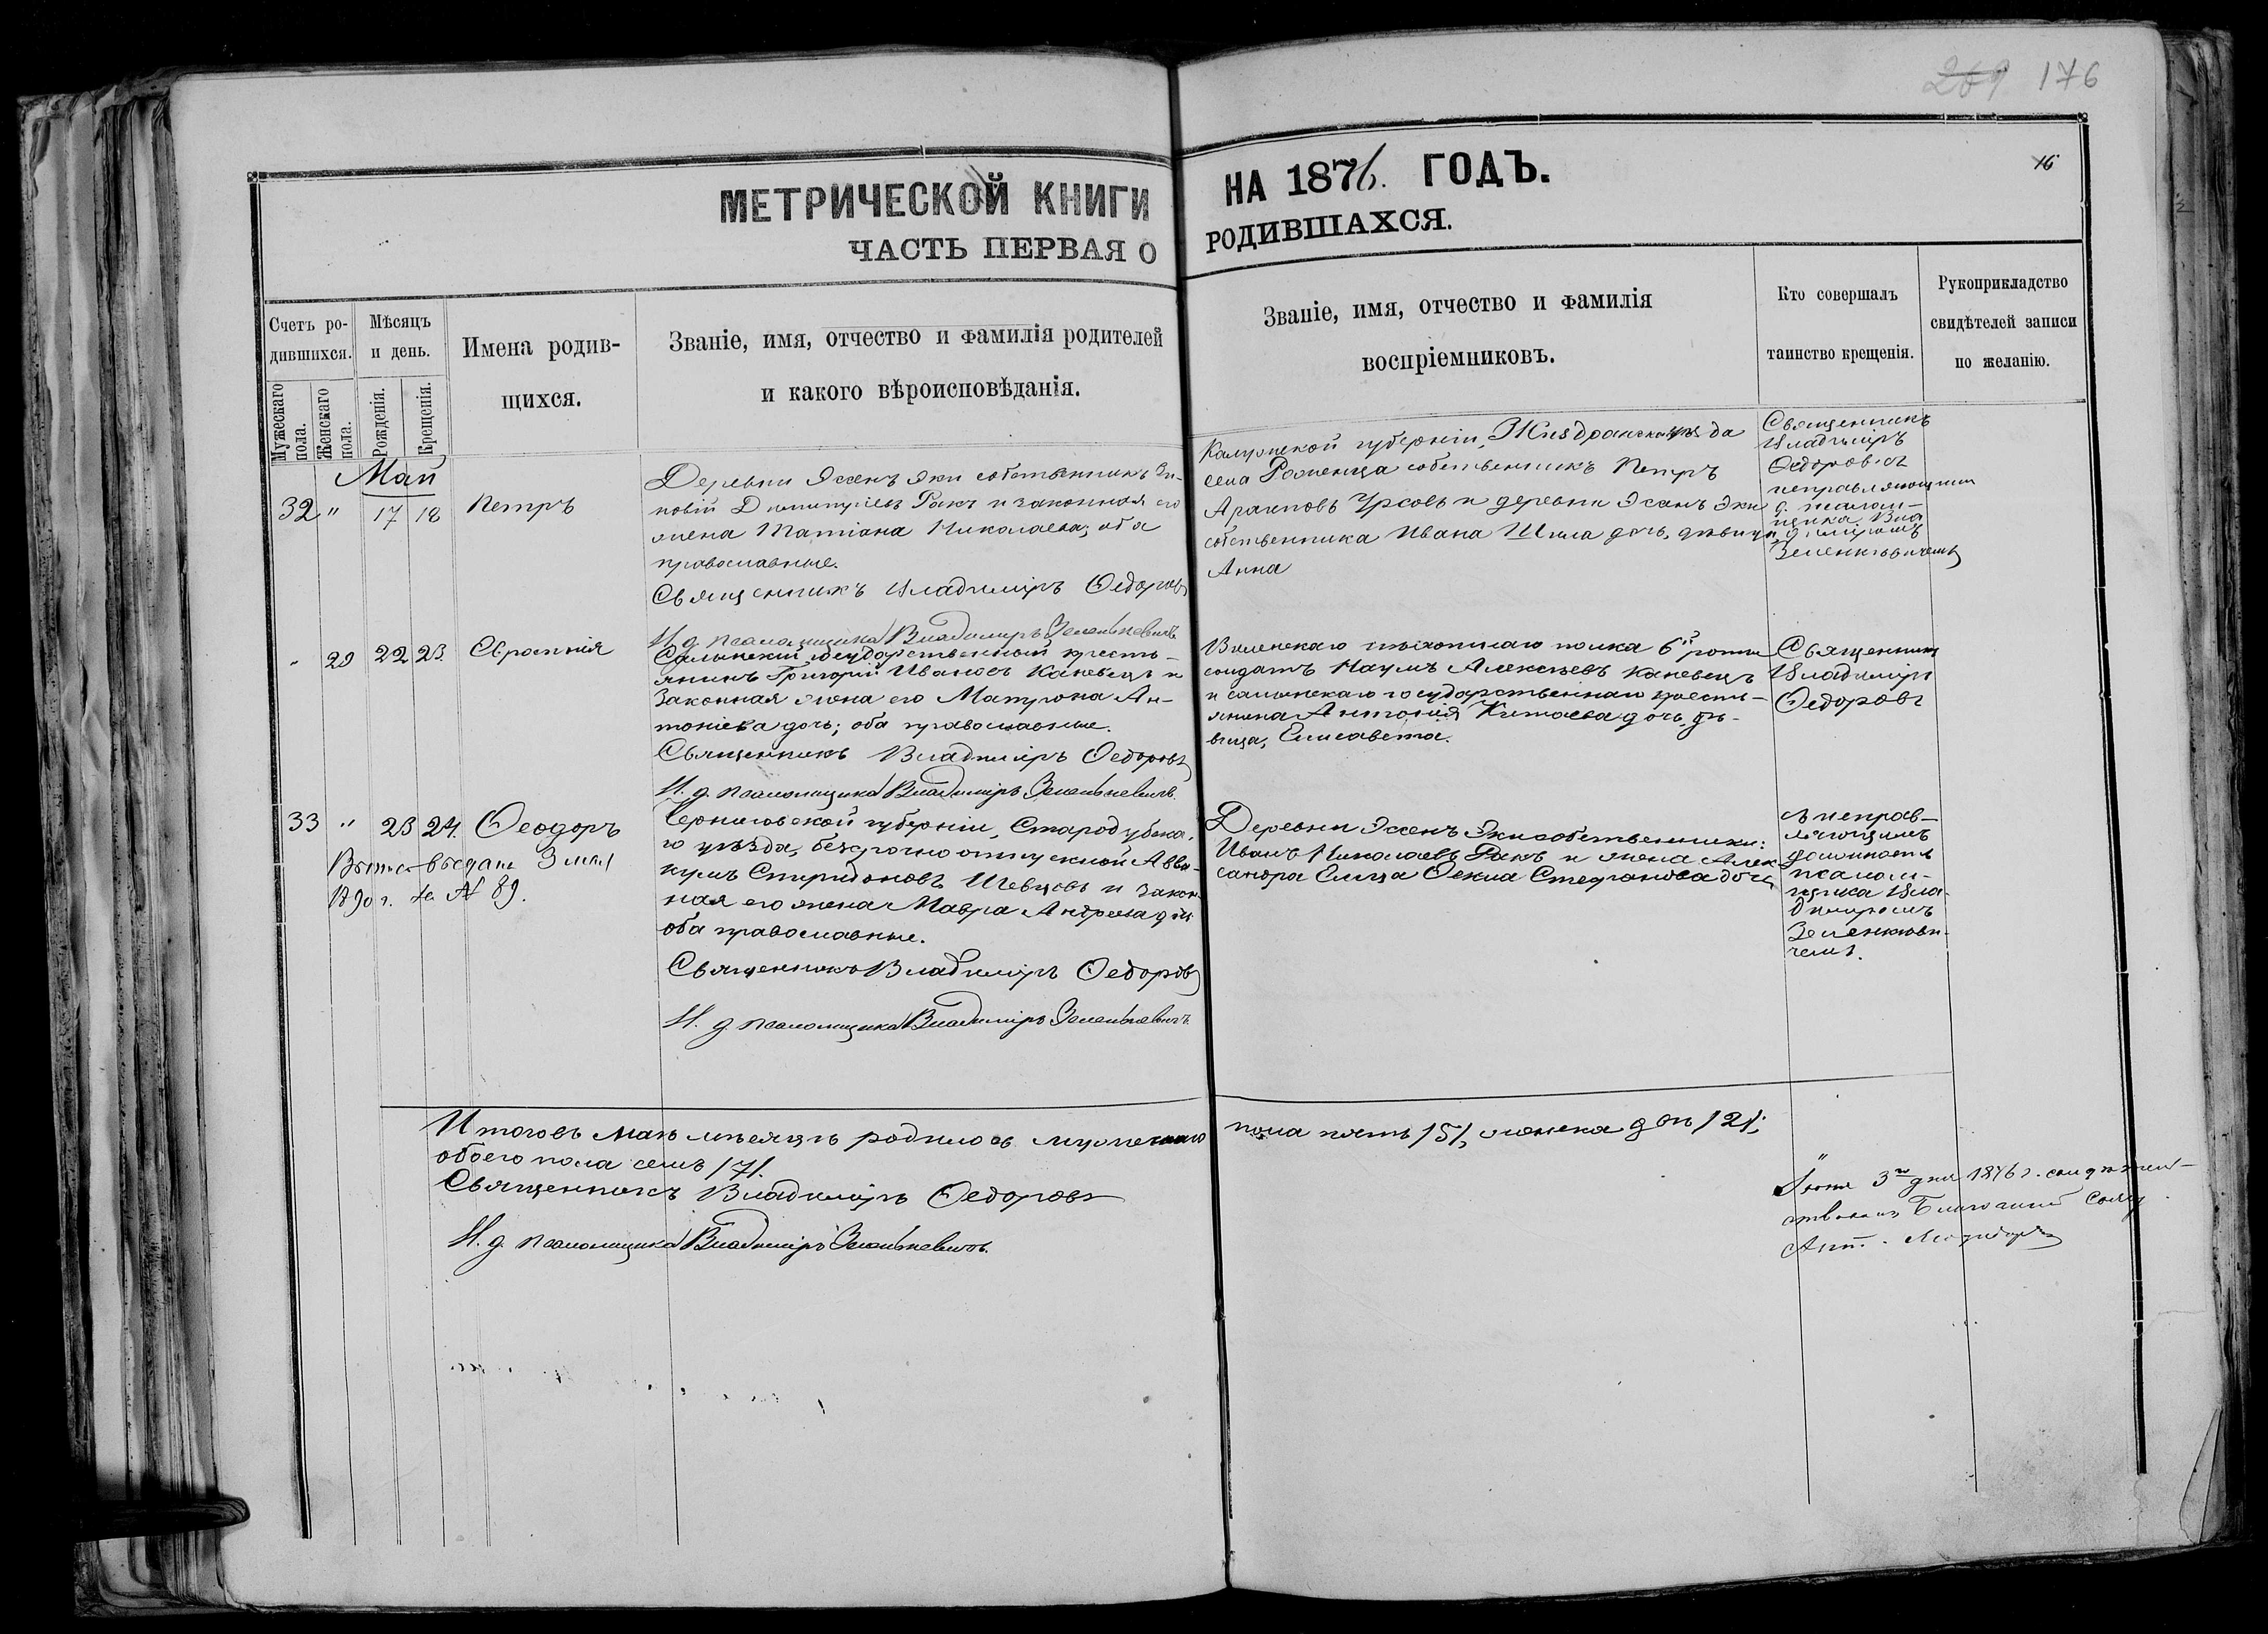 269 176
МЕТРИЧЕСКОЙ КНИГИ НА 1876. ГОДЪ.
16
ЧАСТЬ ПЕРВАЯ О РОДИВШАХСЯ.
Счетъ ро-
дившихся.
Мужескаго пола.
Женскаго пола.
Мѣсяцъ
и день.
Рожденія.
Крещенія.
Имена родив-
щихся.
Званіе, имя, отчество и фамилія родителей
и какого вѣроисповѣданія.
Званіе, имя, отчество и фамилія
воспріемниковъ.
Кто совершалъ
таинство крещенія.
Рукоприкладство
свидѣтелей записи
по желанію.
Май
32 " 17 18 Петръ
Деревни Эсенъ Эки собственникъ Зи-
новій Димитріевъ Ракъ и законная его
жена Татіана Николаева; оба
православные.
Священникъ Владиміръ Ѳедоровъ
И. д. псаломщика Владиміръ Зеленкевичъ
Калужской губерніи, Жиздранскаго уѣзда
села собственникъ Петръ
Урсовъ и деревни Эсенъ Эки
собственника Ивана Шила дочь, дѣвица
Анна
Священникъ
Владиміръ
Ѳедоровъ съ
исправляющимъ
д. псалом-
щика Вла
диміромъ
Зеленкевичемъ
" 20 22 23. Евфросинія
Салынскій государственный кресть-
янинъ Григорій Ивановъ Каневецъ и
законная жена его Матрона Ан-
тоніева дочь; оба православные.
Священникъ Владиміръ Ѳедоровъ
И. д. псаломщика Владиміръ Зеленкевичъ.
Виленскаго пѣхотнаго полка 6й роты
солдатъ Наумъ Алексѣевъ Каневецъ
и салынскаго государственнаго кресть-
янина Антонія Китаева дочь, дѣ-
вица, Елисавета.
Священникъ
Владиміръ
Ѳедоровъ
33 " 23 24. Ѳеодоръ
выдана 3 мая
1890 г. за № 89.
Черниговской губерніи, Стародубска-
го уѣзда, безсрочноотпускной Авва-
кумъ Спиридоновъ Шевцовъ и закон-
ная его жена Мавра Андреева дочь
оба православные.
Священникъ Владиміръ Ѳедоровъ
И. д. псаломщика Владиміръ Зеленкевичъ.
Деревни Эсенъ Эки собственники:
Иванъ Николаевъ Ракъ и жена Алек-
сандра Стефанова дочь
съ исправ-
ляющимъ
должность
псалом-
щика Вла-
диміромъ
Зеленкеви-
чемъ.
Итого въ маѣ мѣсяцѣ родилось мужескаго пола пять /5/, женска двѣ /2/;
обоего пола семь /7/.
Священникъ Владиміръ Ѳедоровъ
И. д. псаломщика Владиміръ Зеленкевичъ.
Іюня 3го дня 1876 г. свидѣтель-
ствовалъ Благочинный Свящ.